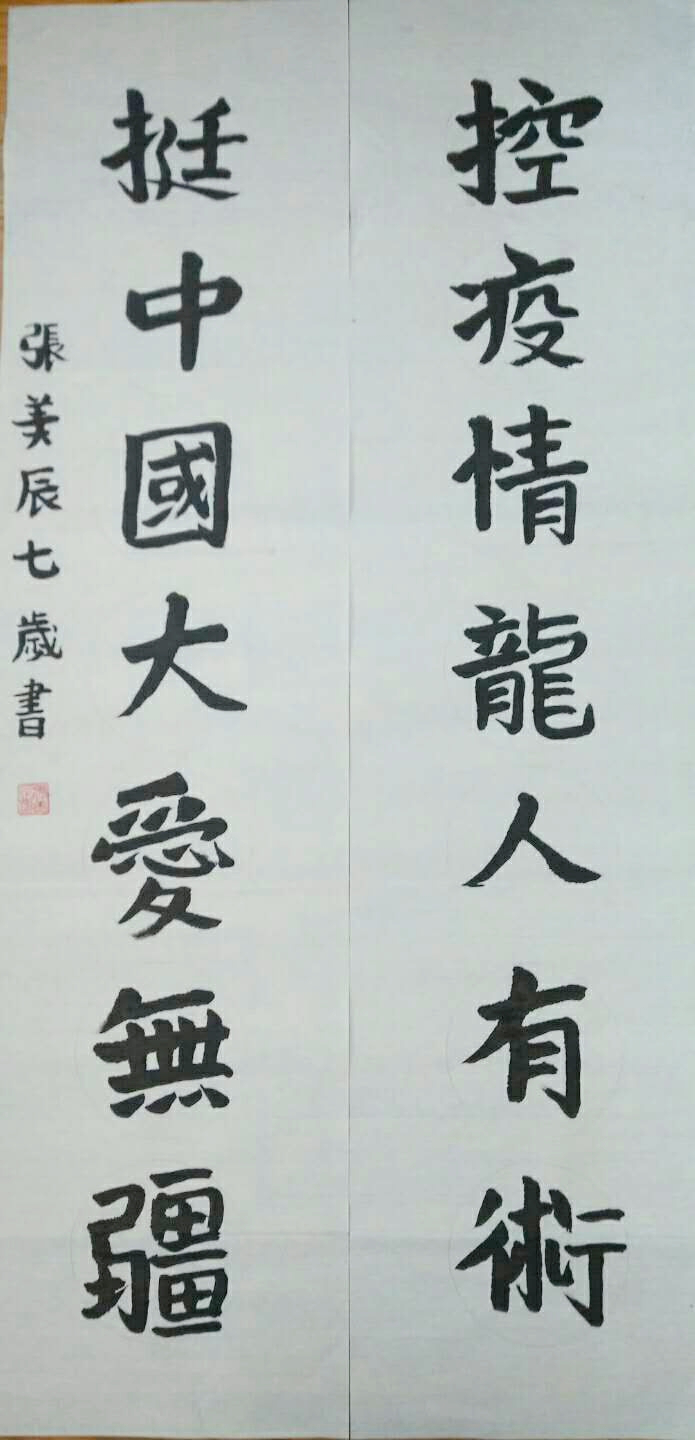 控疫情龍人有術
挺中國大愛無疆
張美辰七歲書